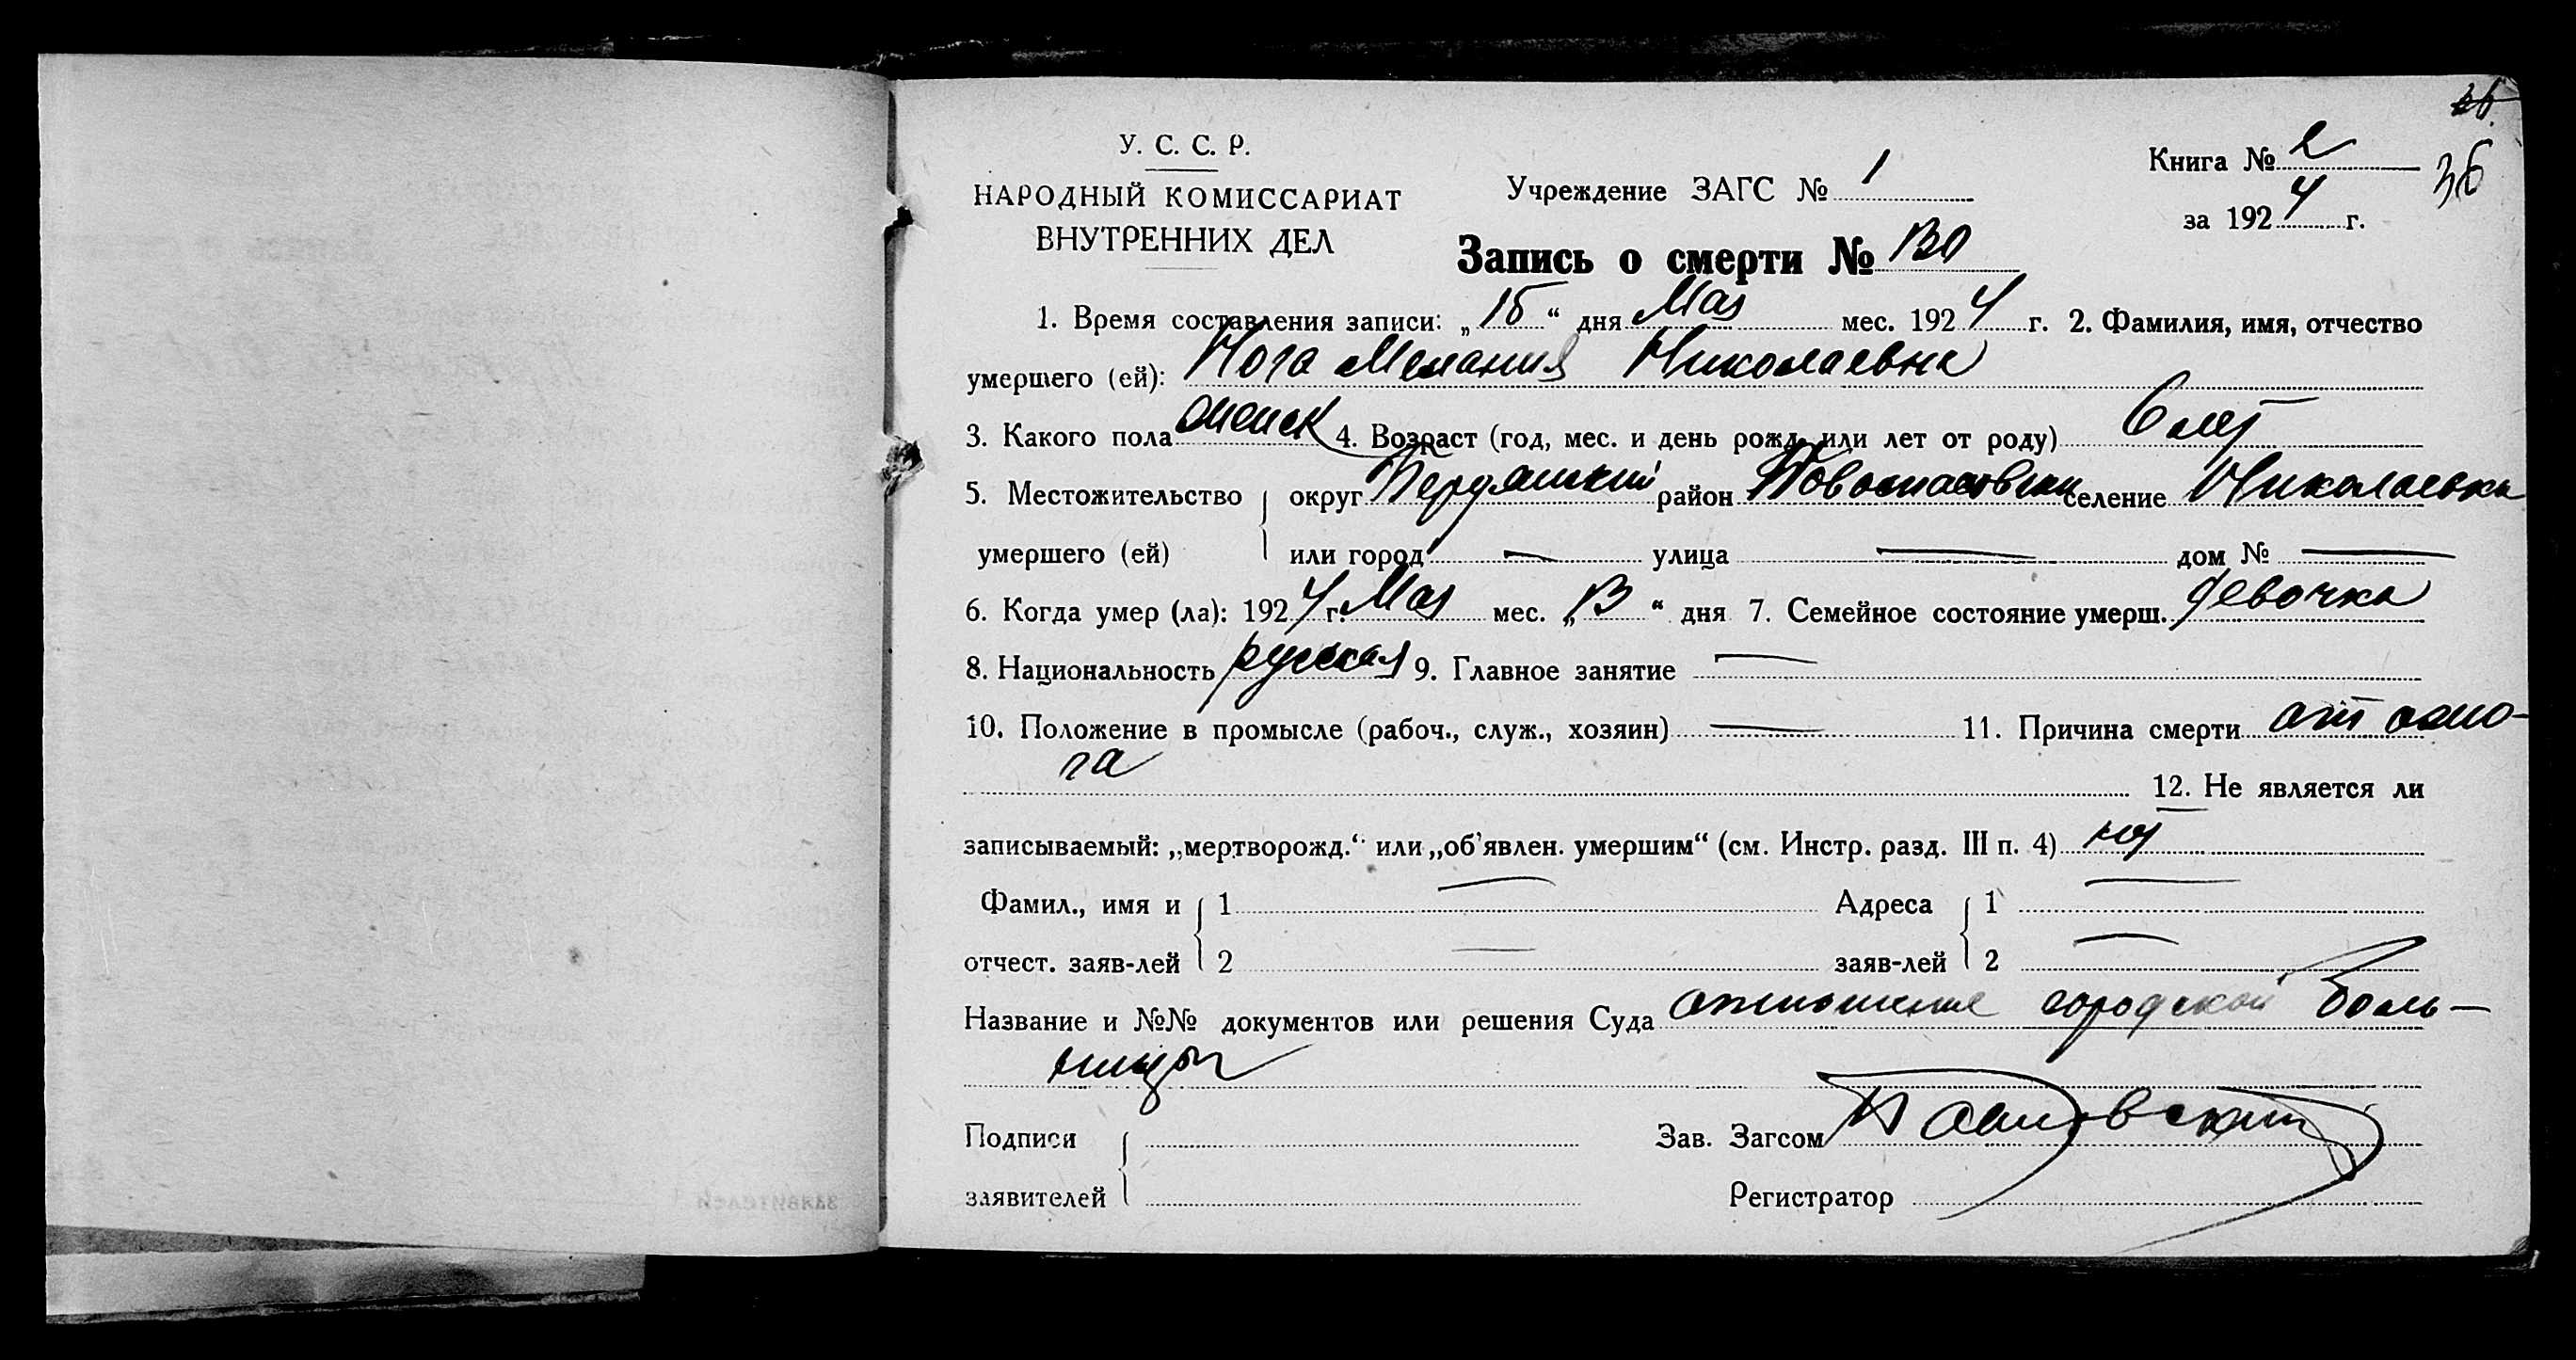 36
У. С. С. Р.
НАРОДНЫЙ КОМИССАРИАТ
ВНУТРЕННИХ ДЕЛ
Учреждение ЗАГС № 1
Книга № 2
за 1924 г.
Запись о смерти № 130
1. Время составления записи: „15“ дня Мая мес. 1924 г. 2. Фамилия, имя, отчество
умершего (ей): Нога Мелания Николаевна
3. Какого пола женск 4. Возраст (год, мес. и день рожд. или лет от роду) 6 лет
5. Местожительство округ район Новоспасовский селение Николаевка
умершего (ей) или город — улица — дом № —
6. Когда умер (ла): 1924 г. Мая мес. „13“ дня 7. Семейное состояние умерш. девочка
8. Национальность русская 9. Главное занятие —
10. Положение в промысле (рабоч., служ., хозяин) — 11. Причина смерти от ожо-
га
12. Не является ли
записываемый: „мертворожд.“ или „об'явлен. умершим“ (см. Инстр. разд. III п. 4) нет
Фамил., имя и 1 — Адреса 1 —
отчест. заяв-лей 2 — заяв-лей 2 —
Название и №№ документов или решения Суда отношение городской боль—
ницы
Подписи Зав. Загсом
заявителей Регистратор